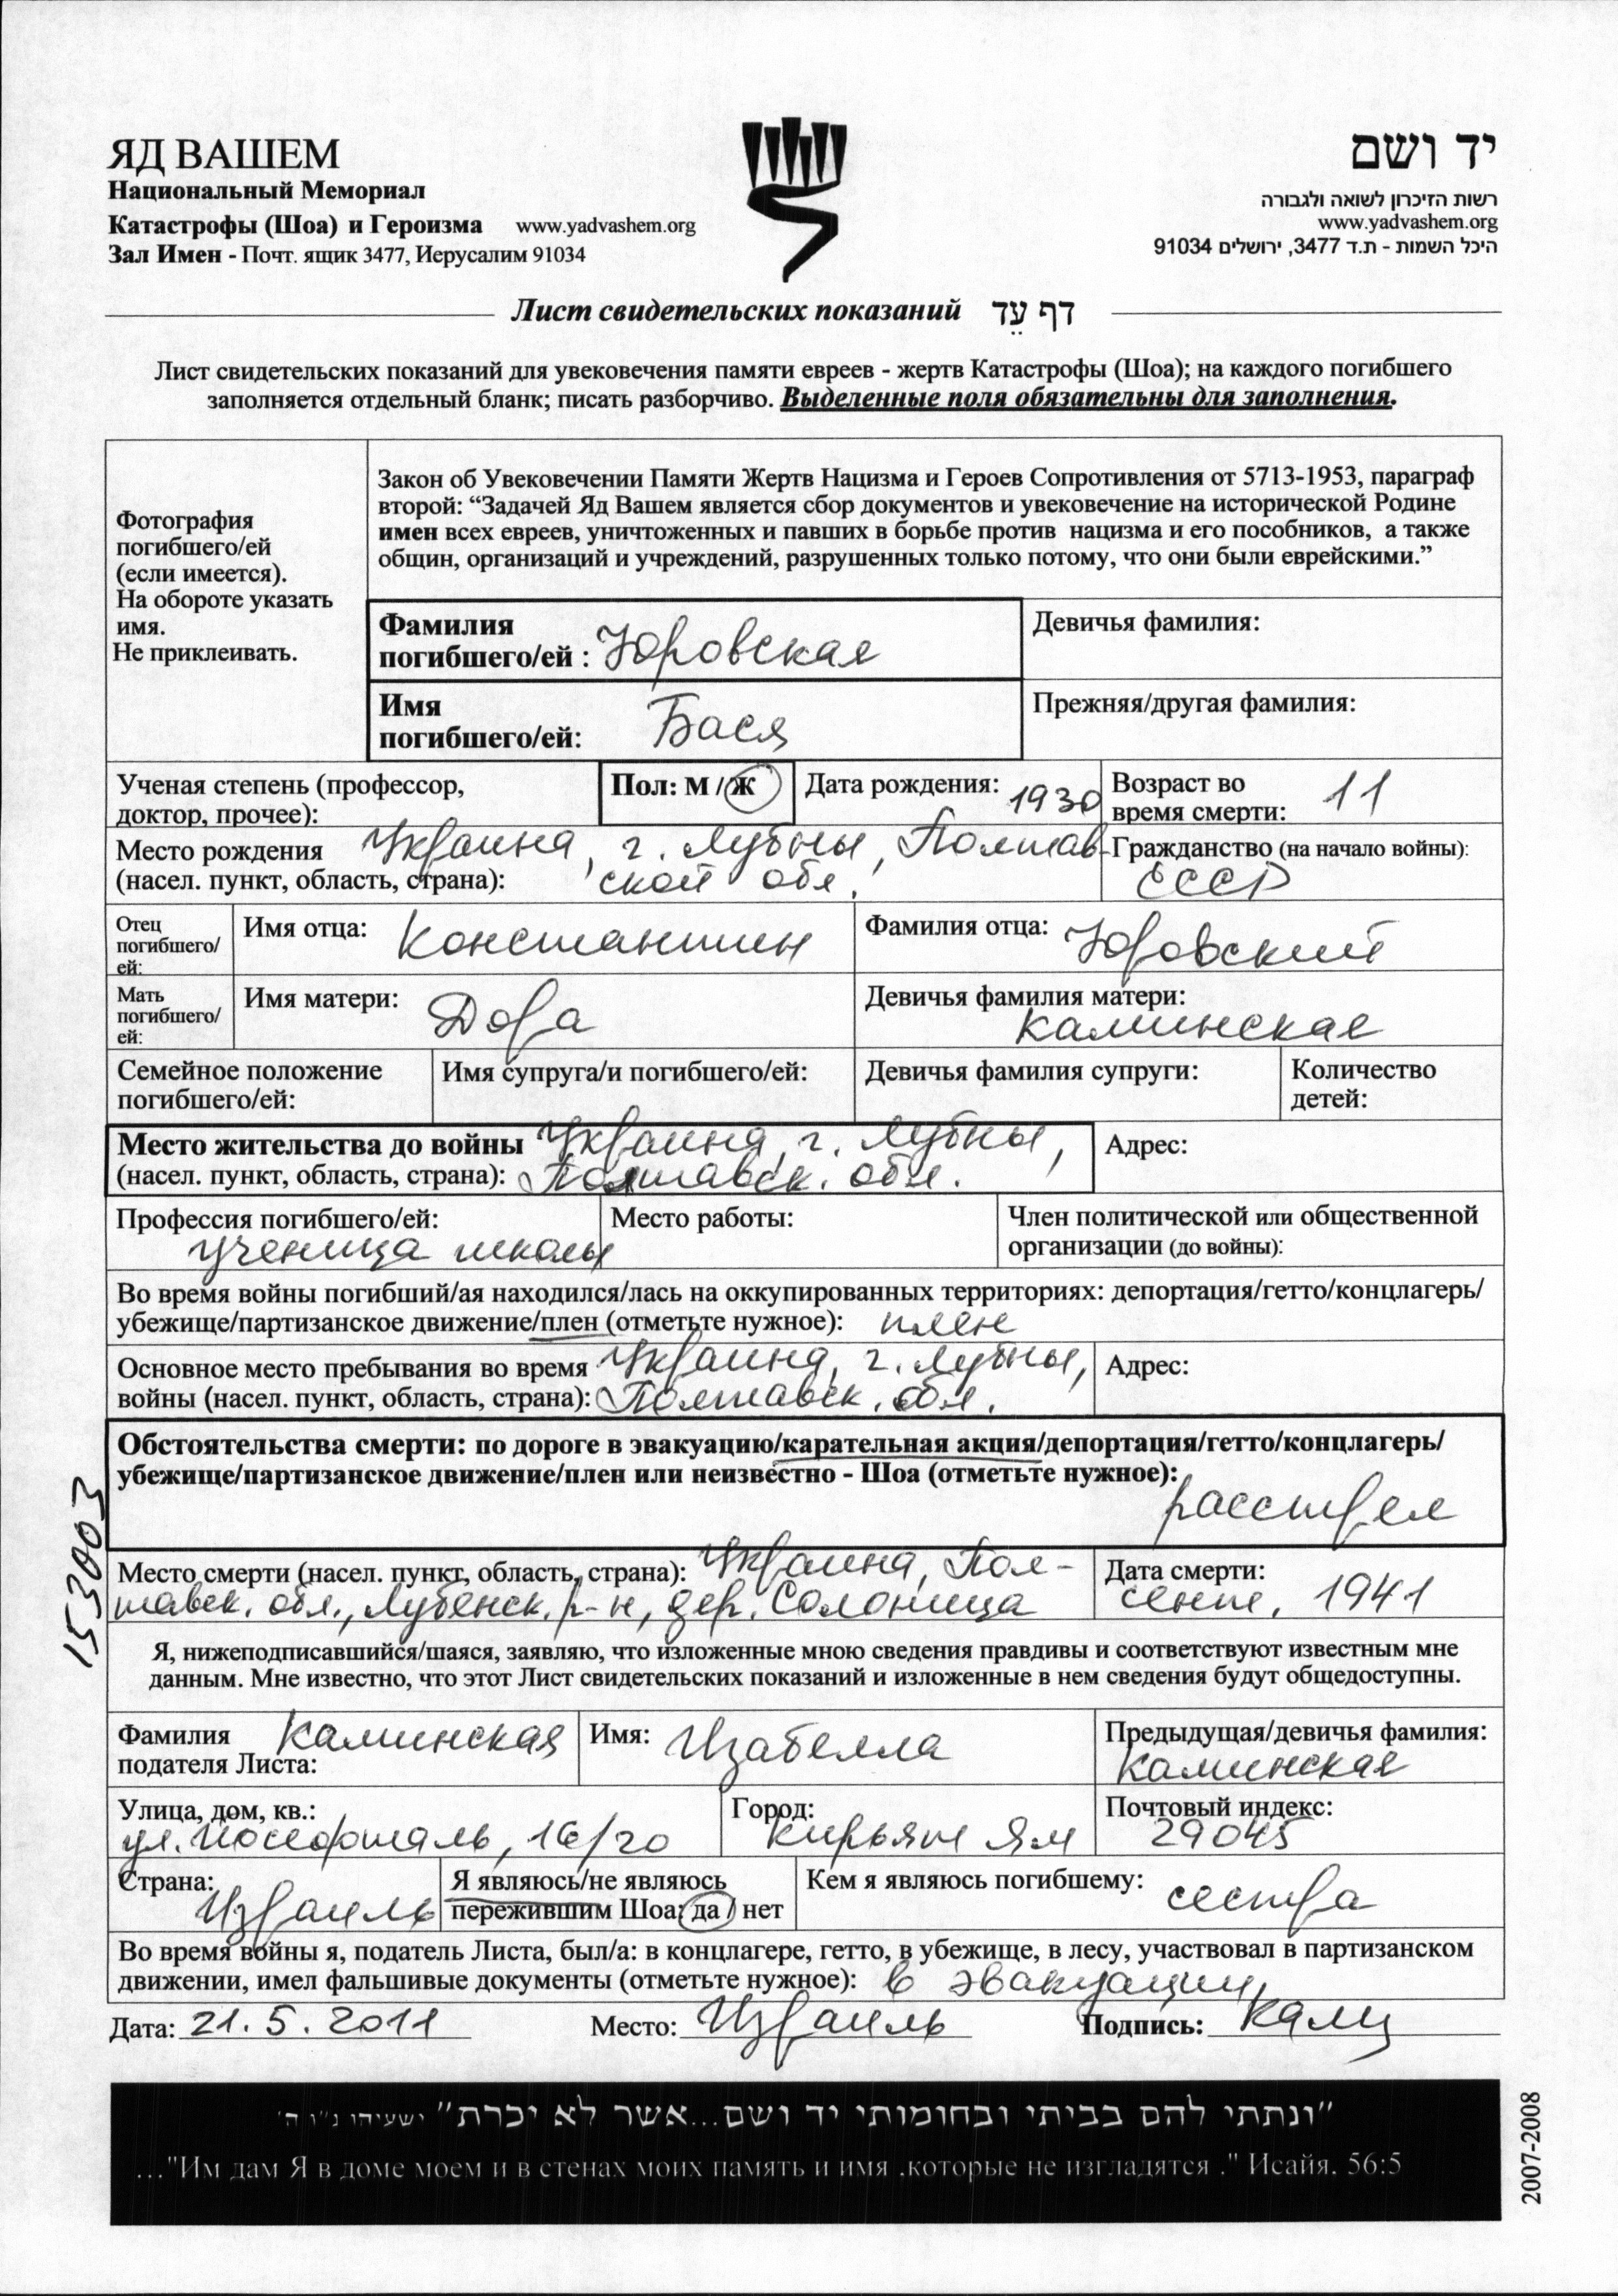 ЯД ВАШЕМ
Национальный Мемориал
Катастрофы (Шоа) и Героизма www.yadvashem.org
Зал Имен - Почт. ящик 3477, Иерусалим 91034
יד ושם
רשות הזיכרון לשואה ולגבורה
www.yadvashem.org
היכל השמות - ת.ד 3477, ירושלים 91034
Лист свидетельских показаний דף עֵד
Лист свидетельских показаний для увековечения памяти евреев - жертв Катастрофы (Шоа); на каждого погибшего
заполняется отдельный бланк; писать разборчиво. Выделенные поля обязательны для заполнения.
Фотография
погибшего/ей
(если имеется).
На обороте указать
имя.
Не приклеивать.
Закон об Увековечении Памяти Жертв Нацизма и Героев Сопротивления от 5713-1953, параграф
второй: “Задачей Яд Вашем является сбор документов и увековечение на исторической Родине
имен всех евреев, уничтоженных и павших в борьбе против нацизма и его пособников, а также
общин, организаций и учреждений, разрушенных только потому, что они были еврейскими.”
Фамилия
погибшего/ей : Юровская
Девичья фамилия:
Имя
погибшего/ей: Бася
Прежняя/другая фамилия:
Ученая степень (профессор,
доктор, прочее):
Пол: М / Ж
Дата рождения: 1930
Возраст во
время смерти: 11
Место рождения Украина, г. Лубны, Полтав-
(насел. пункт, область, страна): ской обл.
Гражданство (на начало войны):
СССР
Отец
погибшего/
ей:
Имя отца: Константин
Фамилия отца: Юровский
Мать
погибшего/
ей:
Имя матери: Дора
Девичья фамилия матери:
Каминская
Семейное положение
погибшего/ей:
Имя супруга/и погибшего/ей:
Девичья фамилия супруги:
Количество
детей:
Место жительства до войны Украина, г. Лубны,
(насел. пункт, область, страна): Полтавск. обл.
Адрес:
Профессия погибшего/ей:
ученица школы
Место работы:
Член политической или общественной
организации (до войны):
Во время войны погибший/ая находился/лась на оккупированных территориях: депортация/гетто/концлагерь/
убежище/партизанское движение/плен (отметьте нужное): плен
Основное место пребывания во время Украина, г. Лубны,
войны (насел. пункт, область, страна): Полтавск. обл.
Адрес:
Обстоятельства смерти: по дороге в эвакуацию/карательная акция/депортация/гетто/концлагерь/
убежище/партизанское движение/плен или неизвестно - Шоа (отметьте нужное):
расстрел
Место смерти (насел. пункт, область, страна): Украина, Пол-
тавск. обл., Лубенск. р-н, дер. Солоница
Дата смерти:
сент. 1941
153003
Я, нижеподписавшийся/шаяся, заявляю, что изложенные мною сведения правдивы и соответствуют известным мне
данным. Мне известно, что этот Лист свидетельских показаний и изложенные в нем сведения будут общедоступны.
Фамилия Каминская
подателя Листа:
Имя: Изабелла
Предыдущая/девичья фамилия:
Каминская
Улица, дом, кв.:
ул. Йосефталь, 16/20
Город:
Кирьят Ям
Почтовый индекс:
29045
Страна:
Израиль
Я являюсь/не являюсь
пережившим Шоа: да / нет
Кем я являюсь погибшему: сестра
Во время войны я, податель Листа, был/а: в концлагере, гетто, в убежище, в лесу, участвовал в партизанском
движении, имел фальшивые документы (отметьте нужное): в эвакуации
Дата: 21.5.2011 Место: Израиль Подпись: Камц
"ונתתי להם בביתי ובחומותי יד ושם...אשר לא יכרת" ישעיהו נ"ו ה'
..."Им дам Я в доме моем и в стенах моих память и имя ,которые не изгладятся ." Исайя. 56:5
2007-2008